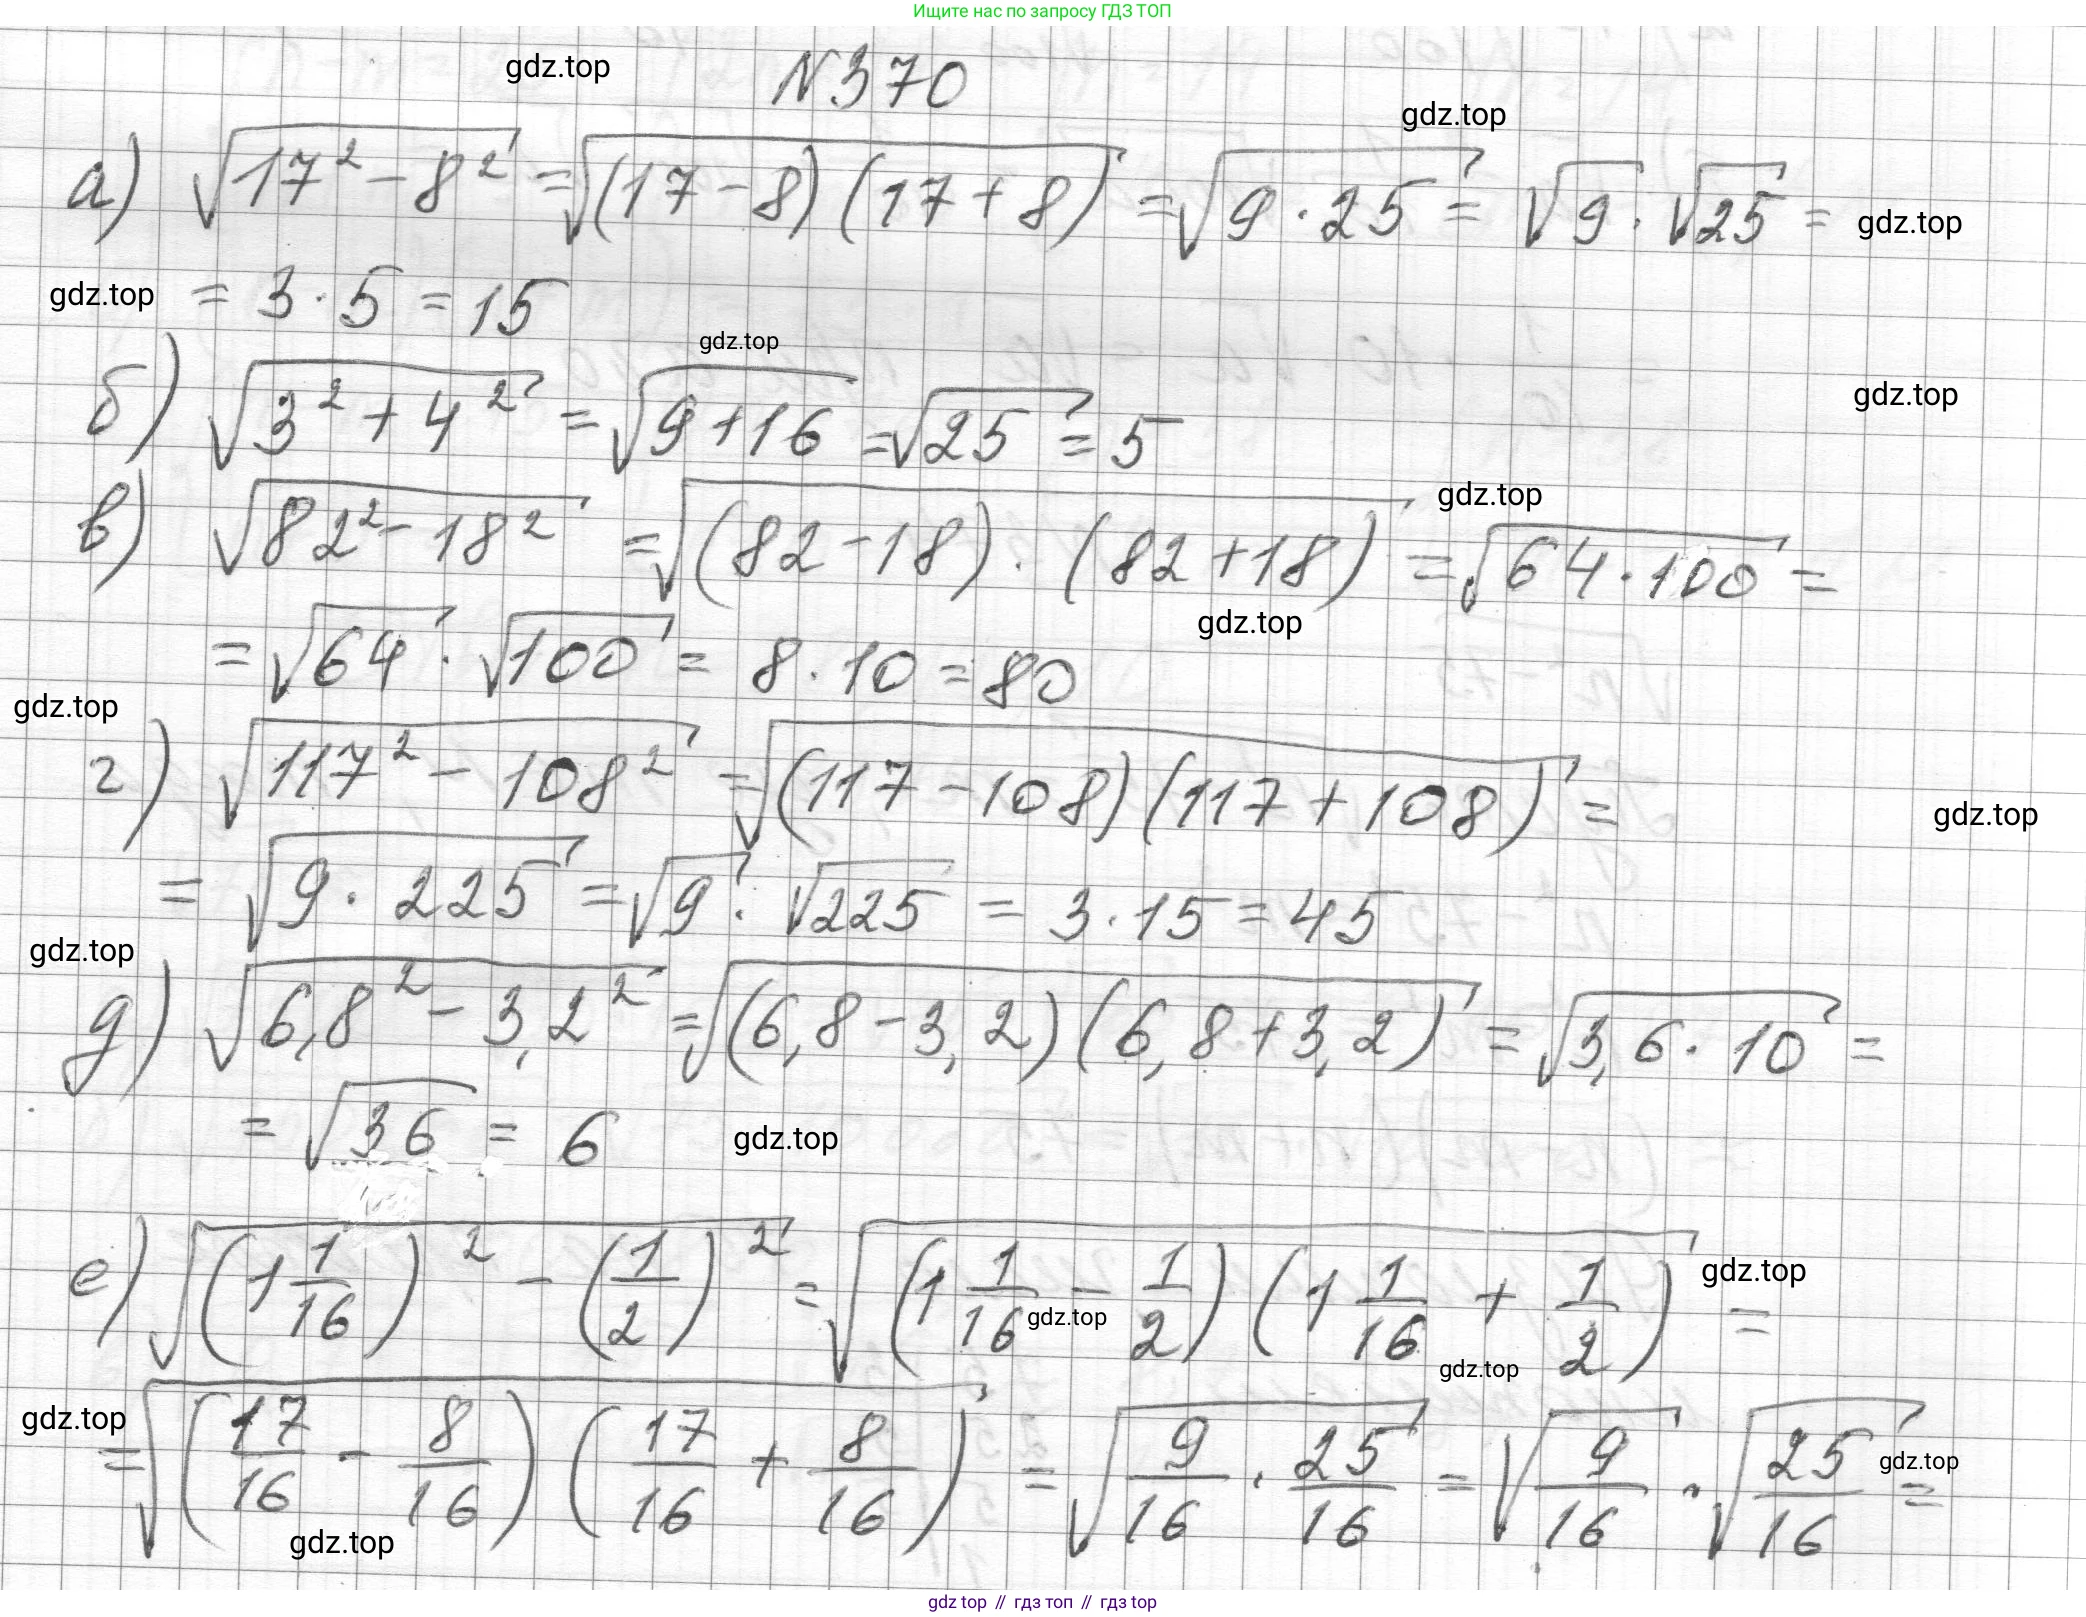 Ищите нас по запросу ГДЗ ТОП
gdz.top
N370
gdz.top
а) √(17² − 8²) = √((17 − 8)(17 + 8)) = √(9 · 25) = √9 · √25 =
gdz.top
gdz.top
= 3 · 5 = 15
gdz.top
б) √(3² + 4²) = √(9 + 16) = √25 = 5
gdz.top
в) √(82² − 18²) = √((82 − 18) · (82 + 18)) = √(64 · 100) =
gdz.top
= √64 · √100 = 8 · 10 = 80
gdz.top
gdz.top
г) √(117² − 108²) = √((117 − 108)(117 + 108)) =
gdz.top
= √(9 · 225) = √9 · √225 = 3 · 15 = 45
gdz.top
д) √(6,8² − 3,2²) = √((6,8 − 3,2)(6,8 + 3,2)) = √(3,6 · 10) =
= √36 = 6
gdz.top
е) √((1 1/16)² − (1/2)²) = √((1 1/16 − 1/2)(1 1/16 + 1/2)) =
gdz.top
gdz.top
gdz.top
gdz.top
= √((17/16 − 8/16)(17/16 + 8/16)) = √(9/16 · 25/16) = √(9/16) · √(25/16) =
gdz.top
gdz.top
gdz top // гдз топ // gdz top